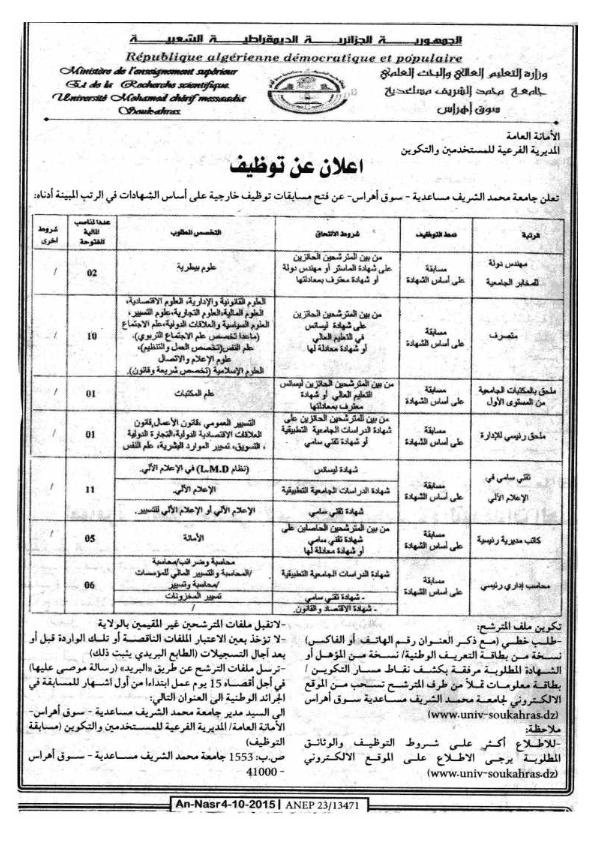 الجمهورية الجزائرية الديمقراطية الشعبية
République algérienne démocratique et populaire
Ministère de l'enseignement supérieur
Et de la Recherche scientifique
Université Mohamed chérif messaadia
Souk-ahras
وزارة التعليم العالي والبحث العلمي
جامعة محمد الشريف مساعدية
سوق أهراس
الأمانة العامة
المديرية الفرعية للمستخدمين والتكوين
اعلان عن توظيف
تعلن جامعة محمد الشريف مساعدية - سوق أهراس- عن فتح مسابقات توظيف خارجية على أساس الشهادات في الرتب المبينة أدناه:
الرتبة
نمط التوظيف
شروط الالتحاق
التخصص المطلوب
عدد المناصب
المالية
المفتوحة
شروط
أخرى
مهندس دولة
للمخابر الجامعية
مسابقة
على أساس الشهادة
من بين المترشحين الحائزين
على شهادة الماستر أو مهندس دولة
أو شهادة معترف بمعادلتها
علوم بيطرية
02
/
متصرف
مسابقة
على أساس الشهادة
من بين المترشحين الحائزين
على شهادة ليسانس
في التعليم العالي
أو شهادة معادلة لها
العلوم القانونية والإدارية، العلوم الاقتصادية،
العلوم المالية،العلوم التجارية،علوم التسيير،
العلوم السياسية والعلاقات الدولية،علم الاجتماع
(ماعدا تخصص علم الاجتماع التربوي)،
علم النفس(تخصص العمل والتنظيم)،
علوم الإعلام والاتصال
العلوم الإسلامية (تخصص شريعة وقانون).
10
/
ملحق بالمكتبات الجامعية
من المستوى الأول
مسابقة
على أساس الشهادة
من بين المترشحين الحائزين ليسانس
التعليم العالي أو شهادة
معترف بمعادلتها
علم المكتبات
01
/
ملحق رئيسي للإدارة
مسابقة
على أساس الشهادة
من بين المترشحين الحائزين على
شهادة الدراسات الجامعية التطبيقية
أو شهادة تقني سامي
التسيير العمومي ،قانون الأعمال،قانون
العلاقات الاقتصادية الدولية،التجارة الدولية
، التسويق، تسيير الموارد البشرية، علم النفس
01
/
تقني سامي في
الإعلام الآلي
مسابقة
على أساس الشهادة
شهادة ليسانس
(نظام L.M.D) في الإعلام الآلي.
شهادة الدراسات الجامعية التطبيقية
الإعلام الآلي.
شهادة تقني سامي
الإعلام الآلي أو الإعلام الآلي للتسيير.
11
/
كاتب مديرية رئيسية
مسابقة
على أساس الشهادة
من بين المترشحين الحاصلين على
شهادة تقني سامي
أو شهادة معادلة لها
الأمانة
05
/
محاسب إداري رئيسي
مسابقة
على أساس الشهادة
شهادة الدراسات الجامعية التطبيقية
محاسبة وضرائب/محاسبة
/المحاسبة والتسيير المالي للمؤسسات
/محاسبة وتسيير
- شهادة تقني سامي
تسيير المخزونات
- شهادة الاقتصاد والقانون.
/
06
/
تكوين ملف المترشح:
-طلب خطي (مع ذكر العنوان رقم الهاتف أو الفاكس)
نسخة من بطاقة التعريف الوطنية/ نسخة من المؤهل أو
الشهادة المطلوبة مرفقة بكشف نقاط مسار التكوين /
بطاقة معلومات تملأ من طرف المترشح تسحب من الموقع
الالكتروني لجامعة محمد الشريف مساعدية سوق أهراس
(www.univ-soukahras.dz)
ملاحظة:
-للاطلاع أكثر على شروط التوظيف والوثائق
المطلوبة يرجى الاطلاع على الموقع الالكتروني
(www.univ-soukahras.dz)
-لاتقبل ملفات المترشحين غير المقيمين بالولاية
-لا تؤخذ بعين الاعتبار الملفات الناقصة أو تلك الواردة قبل أو
بعد آجال التسجيلات (الطابع البريدي يثبت ذلك)
-ترسل ملفات الترشح عن طريق «البريد» (رسالة موصى عليها)
في أجل أقصاه 15 يوم عمل ابتداءا من أول اشهار للمسابقة في
الجرائد الوطنية الى العنوان التالي:
الى السيد مدير جامعة محمد الشريف مساعدية - سوق أهراس-
الأمانة العامة/ المديرية الفرعية للمستخدمين والتكوين (مسابقة
التوظيف)
ص.ب: 1553 جامعة محمد الشريف مساعدية - سوق أهراس
- 41000
An-Nasr4-10-2015 | ANEP 23/13471